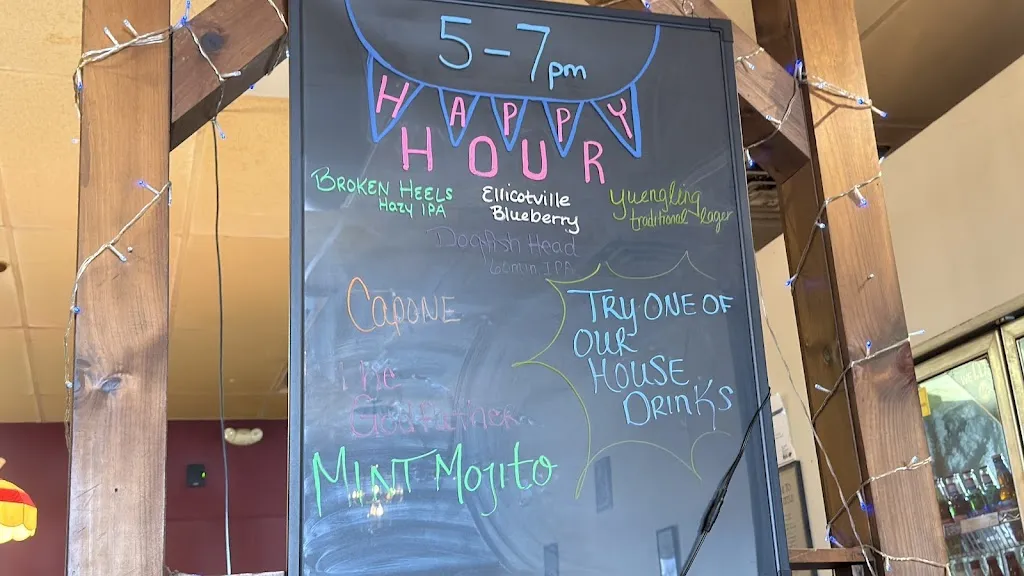 5-7pm
HAPPY
HOUR
BROKEN HEELS
HAZY IPA
Ellicotville
Blueberry
Yuengling
traditional lager
Dogfish Head
60min IPA
CAPONE
The
Godfather
MINT MOJITO
TRY ONE OF
OUR
HOUSE
DRINKS